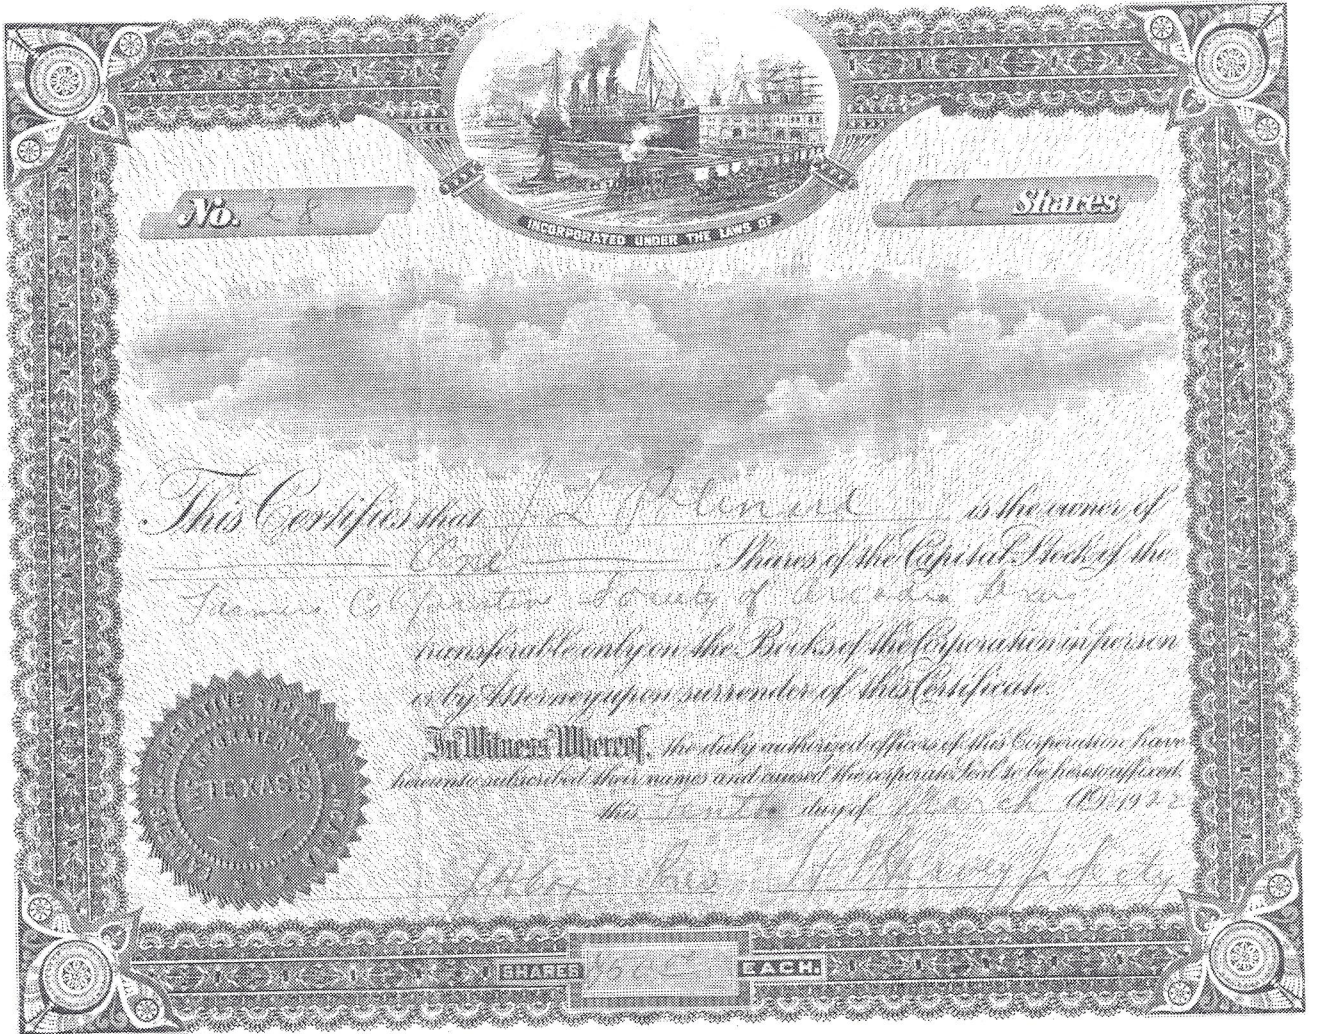 INCORPORATED UNDER THE LAWS OF
No. 28
One Shares
This Certifies that J L is the owner of
One Shares of the Capital Stock of the
Farmers CoOperative Society of Arcadia Texas
transferable only on the Books of the Corporation in person
or by Attorney upon surrender of this Certificate.
In Witness Whereof, the duly authorized officers of this Corporation have
hereunto subscribed their names and caused the corporate Seal to be hereto affixed
this Tenth day of March A.D. 1922
TEXAS
J H Cox Pres
SHARES EACH.